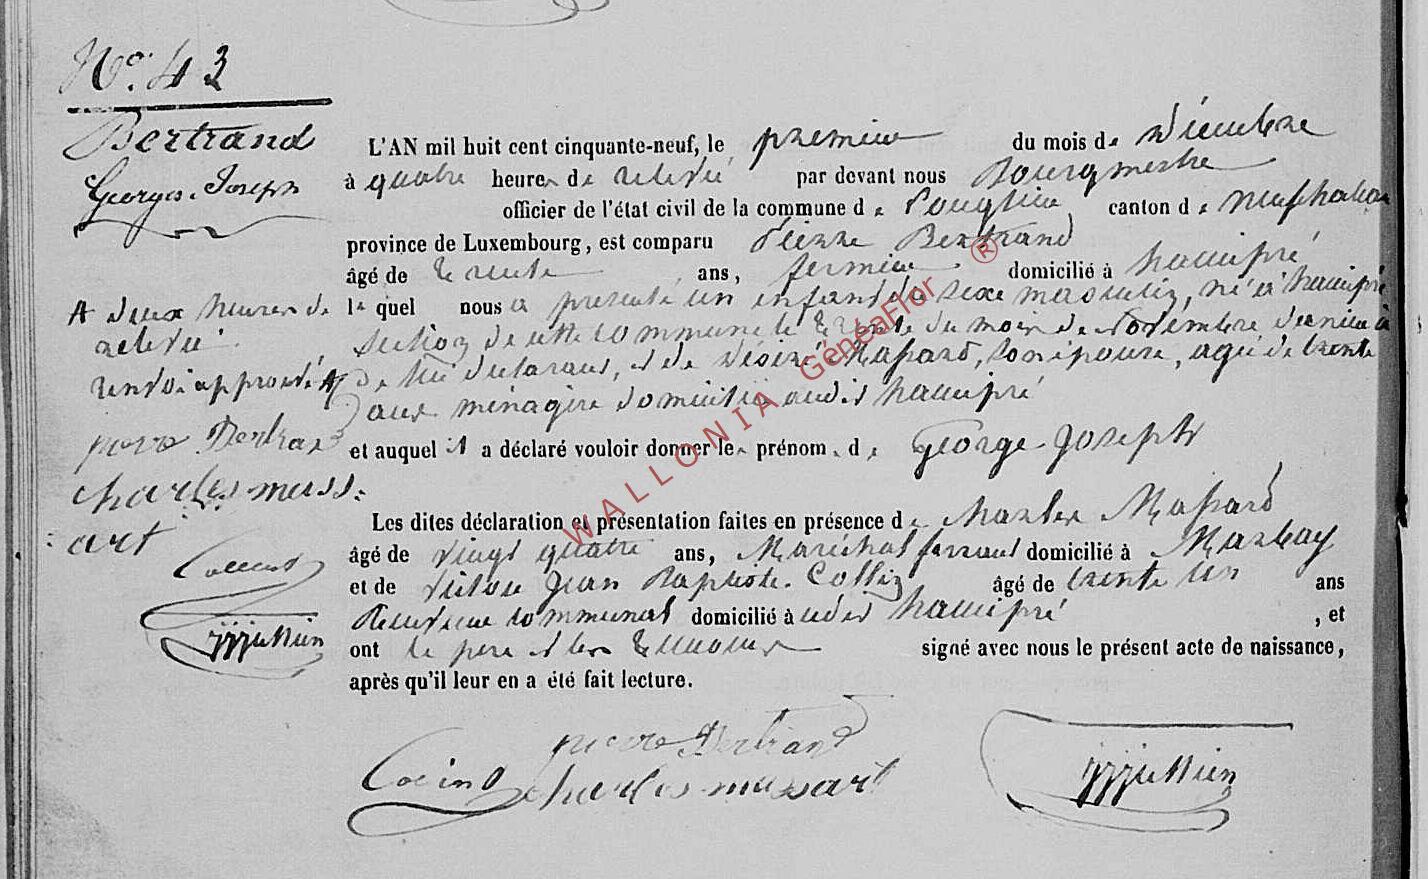 No. 43
Bertrand
Georges Joseph
L'AN mil huit cent cinquante-neuf, le premier du mois de décembre
à quatre heures de relevée par devant nous Bourgmestre
officier de l'état civil de la commune de canton de Neufchateau
province de Luxembourg, est comparu Pierre Bertrand
âgé de trente ans, fermier domicilié à hamipré
le quel nous a présenté un enfant du sexe masculin, né à hamipré
section de cette commune le trente du mois de novembre dernier A
de lui déclarant, et de Désiré Massard, son épouse, agée de trente
ans ménagère domiciliée audit hamipré
et auquel il a déclaré vouloir donner les prénom. de George Joseph
Les dites déclaration et présentation faites en présence de Charles Massard
âgé de vingt quatre ans, Maréchal ferrant domicilié à Marbay
et de Jean Baptiste Collin âgé de trente un ans
Receveur communal domicilié à udit hamipré, et
ont le père et les témoins signé avec nous le présent acte de naissance,
après qu'il leur en a été fait lecture.
A deux heures de
relevée
renvoi approuvé A
pierre Bertrand
charles muss:
:art
pierre Bertrand
charles mussart
WALLONIA GénéaFlor ®